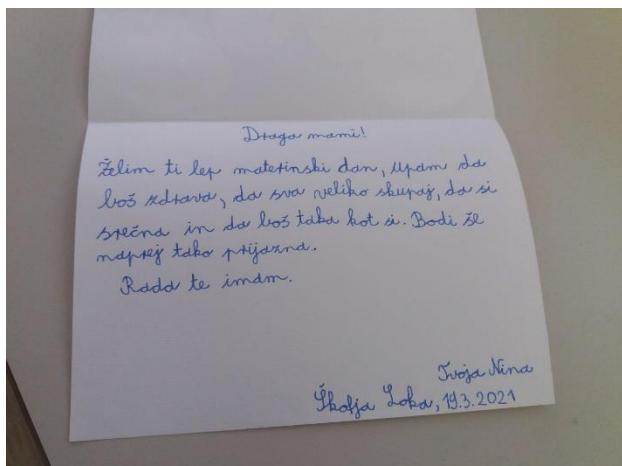 Draga mami!
Želim ti lep materinski dan, upam da
boš zdrava, da sva veliko skupaj, da si
srečna in da boš taka kot si. Bodi še
naprej tako prijazna.
Rada te imam.
Tvoja Nina
Škofja Loka, 19.3.2021